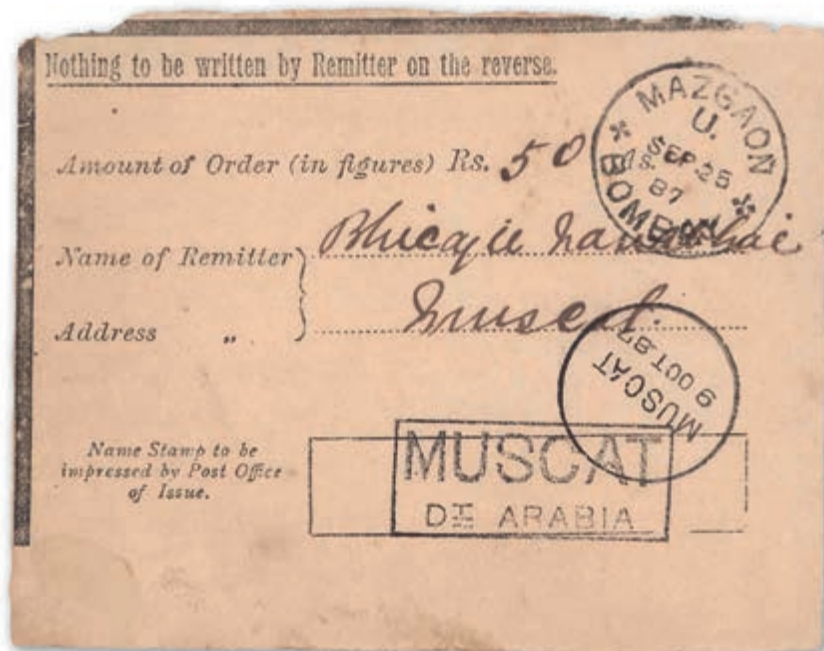 Nothing to be written by Remitter on the reverse.
Amount of Order (in figures) Rs. 50
MAZGAON
U.
SEP. 25
87
BOMBAY
Name of Remitter
Address „
Muscat.
MUSCAT
9 OCT. 87
Name Stamp to be
impressed by Post Office
of Issue.
MUSCAT
ARABIA